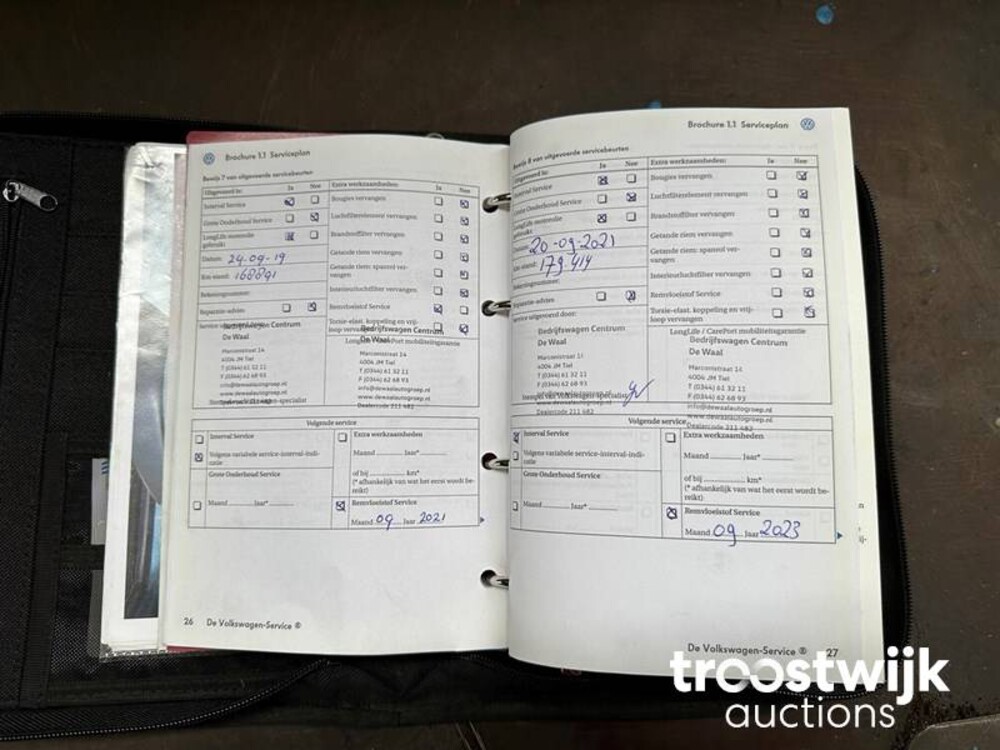 Brochure 1.1 Serviceplan
Bewijs 7 van uitgevoerde servicebeurten
Uitgevoerd is: Ja Nee
Interval Service
Grote Onderhoud Service
LongLife motorolie
gebruikt
Datum: 24-09-19
Km-stand: 168891
Rekeningnummer:
Reparatie-advies
Service uitgevoerd
Bedrijfswagen Centrum
De Waal
Marconistraat 14
4004 JM Tiel
T (0344) 61 32 11
F (0344) 62 68 93
info@dewaalautogroep.nl
www.dewaalautogroep.nl
Dealercode 211 482
Extra werkzaamheden: Ja Nee
Bougies vervangen
Luchtfilterelement vervangen
Brandstoffilter vervangen
Getande riem vervangen
Getande riem: spanrol ver-
vangen
Interieurluchtfilter vervangen
Remvloeistof Service
Torsie-elast. koppeling en vrij-
loop vervangen
Bedrijfswagen Centrum
De Waal
LongLife / CarePort mobiliteitsgarantie
Marconistraat 14
4004 JM Tiel
T (0344) 61 32 11
F (0344) 62 68 93
info@dewaalautogroep.nl
www.dewaalautogroep.nl
Dealercode 211 482
Volgende service
Interval Service
Volgens variabele service-interval-indi-
catie
Grote Onderhoud Service
Maand Jaar*
Extra werkzaamheden
Maand Jaar*
of bij km*
(* afhankelijk van wat het eerst wordt be-
reikt)
Remvloeistof Service
Maand 09 Jaar 2021
26 De Volkswagen-Service ®
Brochure 1.1 Serviceplan
Bewijs 8 van uitgevoerde servicebeurten
Uitgevoerd is: Ja Nee
Interval Service
Grote Onderhoud Service
LongLife motorolie
gebruikt
Datum: 20-09-2021
Km-stand: 179.414
Rekeningnummer:
Reparatie-advies
Service uitgevoerd door:
Bedrijfswagen Centrum
De Waal
Marconistraat 14
4004 JM Tiel
T (0344) 61 32 11
F (0344) 62 68 93
Stempel van Volkswagen-specialist
www.dewaalautogroep.nl
Dealercode 211 482
Extra werkzaamheden: Ja Nee
Bougies vervangen
Luchtfilterelement vervangen
Brandstoffilter vervangen
Getande riem vervangen
Getande riem: spanrol ver-
vangen
Interieurluchtfilter vervangen
Remvloeistof Service
Torsie-elast. koppeling en vrij-
loop vervangen
LongLife / CarePort mobiliteitsgarantie
Bedrijfswagen Centrum
De Waal
Marconistraat 14
4004 JM Tiel
T (0344) 61 32 11
F (0344) 62 68 93
info@dewaalautogroep.nl
www.dewaalautogroep.nl
Dealercode 211 482
Volgende service
Interval Service
Volgens variabele service-interval-indi-
catie
Grote Onderhoud Service
Maand Jaar*
Extra werkzaamheden
Maand Jaar*
of bij km*
(* afhankelijk van wat het eerst wordt be-
reikt)
Remvloeistof Service
Maand 09 Jaar 2023
De Volkswagen-Service ® 27
troostwijk
auctions